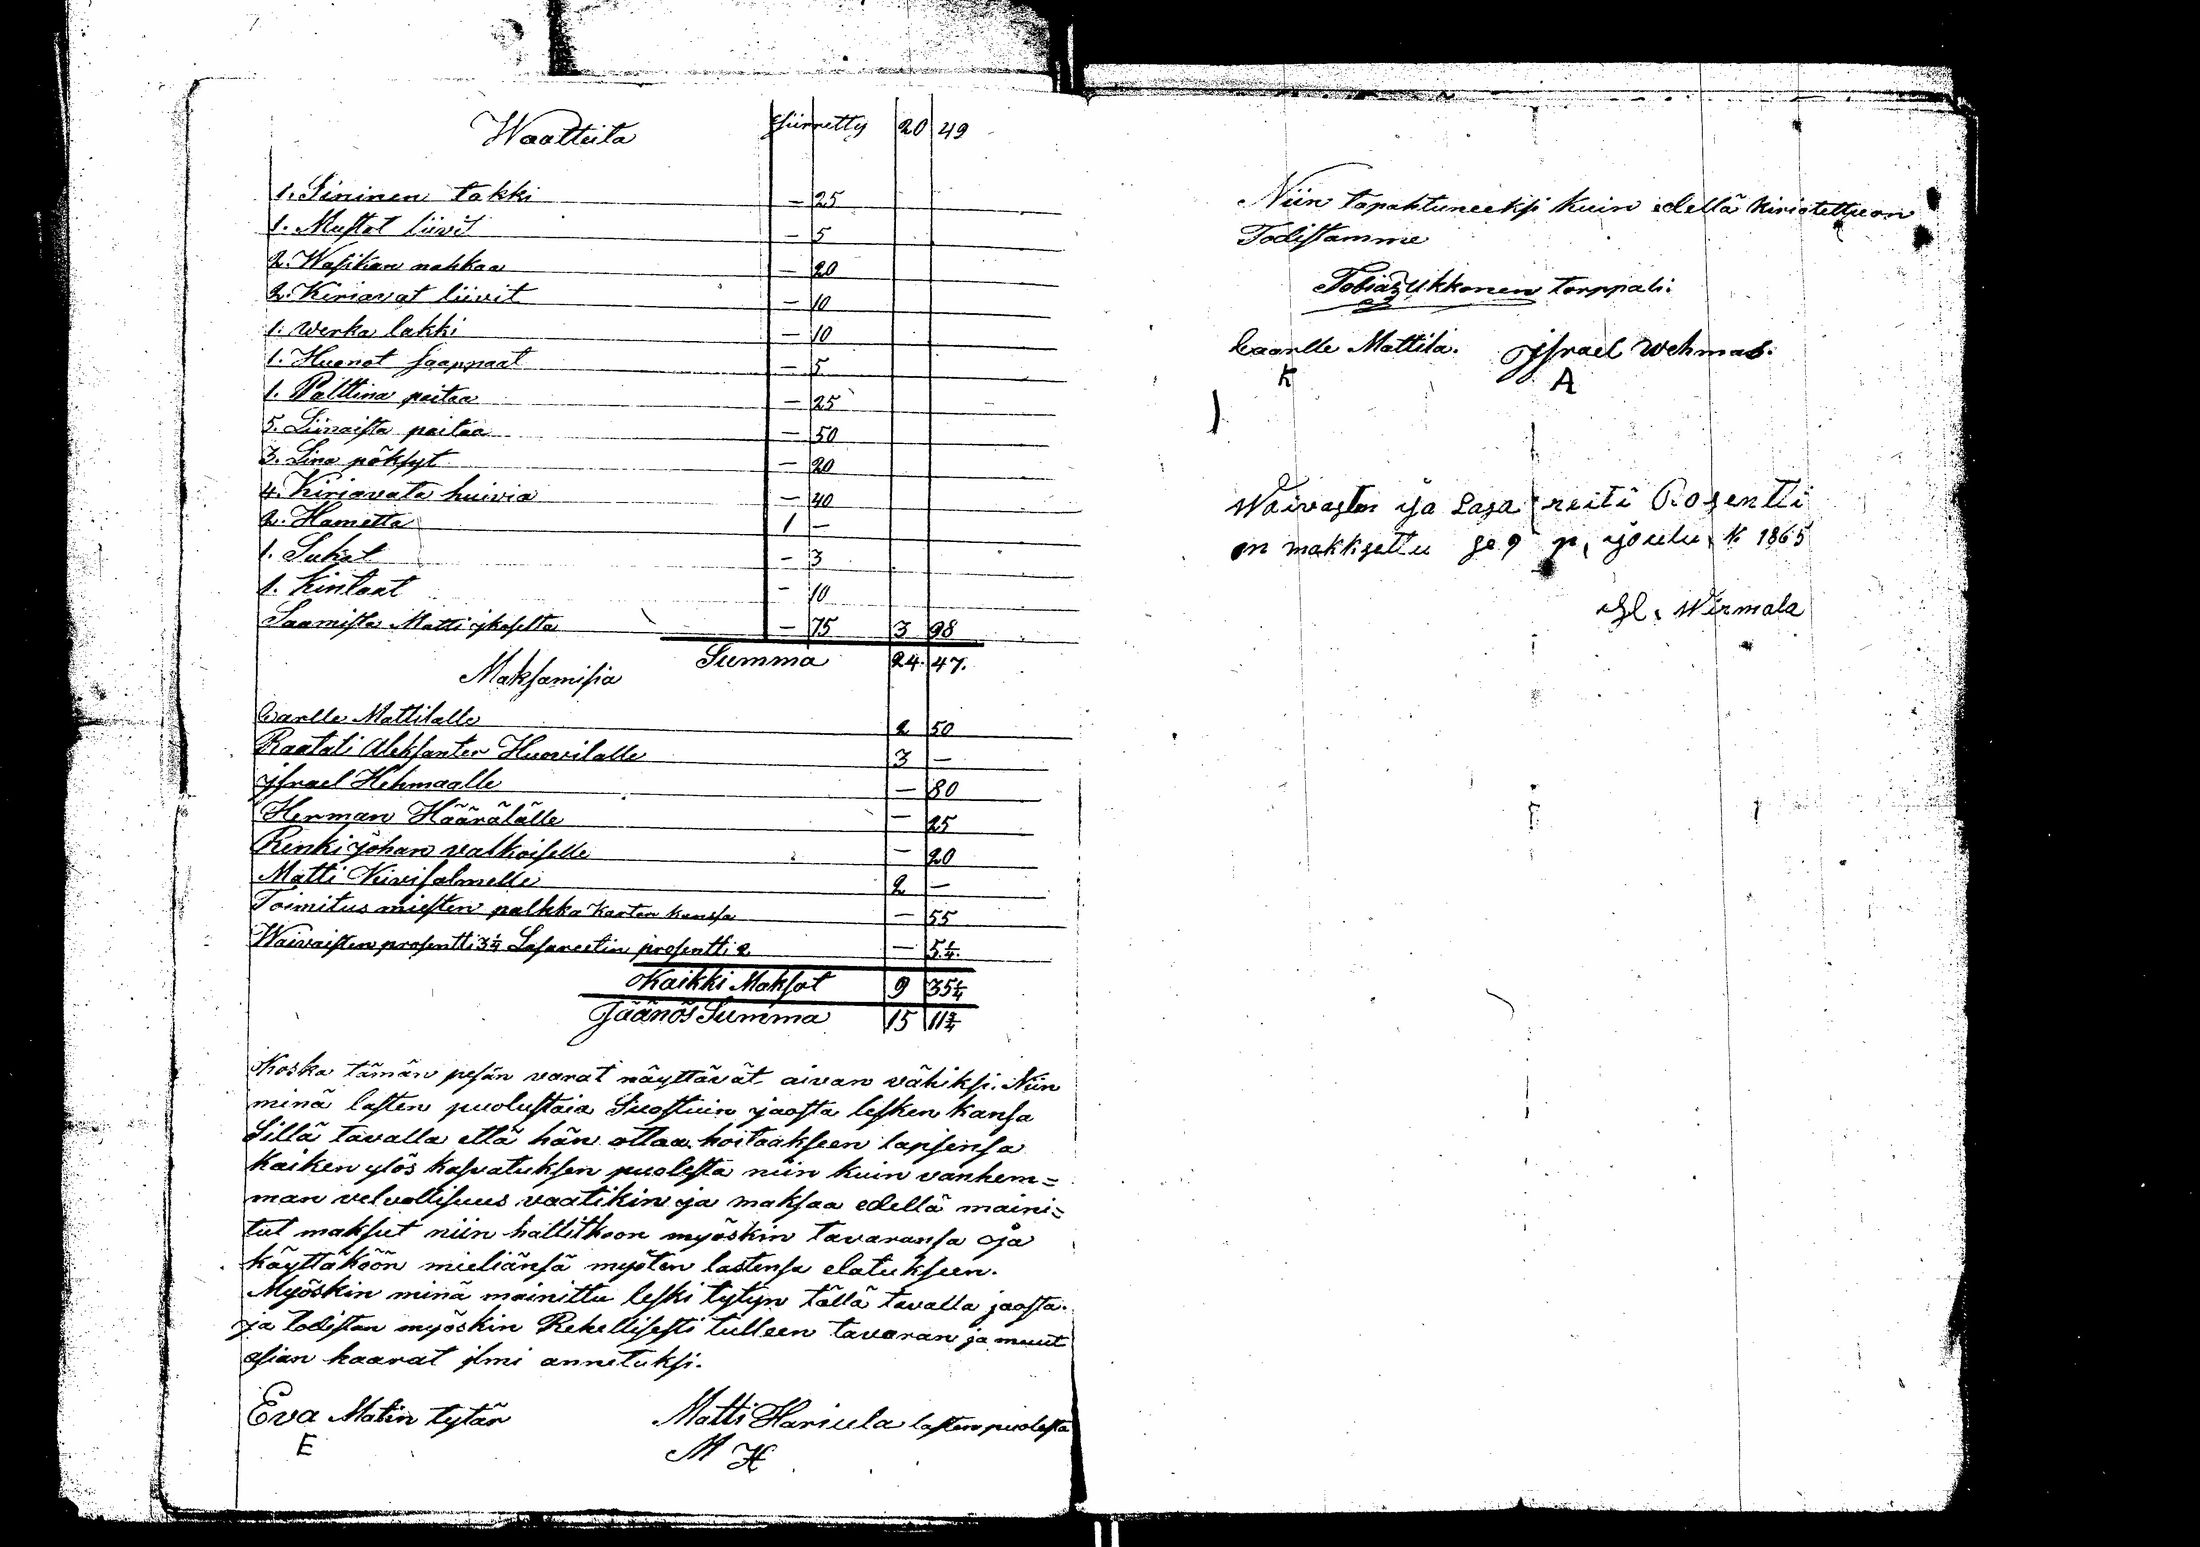 Waatteita Siirretty 20 49
1. Sininen takki – 25
1. Mustat liivit – 5
2. Wasikan nahkaa – 20
2. Kiriavat liivit – 10
1. werka lakki – 10
1. Huonot saappaat – 5
1. Palttina paitaa – 25
5. Liinaista paitaa – 50
3. Lina pöksyt – 20
4. Kiriavata huivia – 40
2. Hametta 1 –
1. Sukat – 3
1. Kintaat – 10
Saamista Matti ykoselta – 75 3 98
Summa 24. 47.
Maksamisia
Carlle Mattilalle 2 50
Raatali Aleksanter Huovilalle 3 –
jsrael Hehmaalle – 80
Herman Häärälälle – 25
Renki johan valkoiselle – 20
Matti Kivisalmelle 2 –
Toimitus miesten palkka kartan kanssa – 55
Waivaisten prosentti 3¼ Lasareetin prosentti 2 – 5¼.
Kaikki Maksot 9 35¼
Jäänös Summa 15 11¾
Koska tämän pesän varat näyttävät aivan vähiksi. Niin
minä lasten puolustaia Suostuin jaosta lesken kansa
Sillä tavalla että hän ottaa hoitaakseen lapsensa
kaiken ylös kasvatuksen puolesta niin kuin vanhem=
man velvollisuus vaatikin ja maksaa edellä maini=
tut maksut niin hallitkoon myöskin tavaransa ja
käyttäköön mieliänsä myöten lastensa elatukseen.
Myöskin minä mainittu leski tytyn tällä tavalla jaosta.
ja todistan myöskin Rehellisesti tulleen tavaran ja muut
asian haarat ilmi annetuksi.
Eva Matin tytär Matti Hariula lasten puolesta
E M H
Niin tapahtuneeksi kuin edellä kirioitettu on
Todistamme
Tobias Ukkonen torppali.
Caarlle Mattila. jsrael Wehmas.
K A
Waivasten ja Lasa reiti Rosentti
on makksettu se 9 p, joulu k 1865
Wirmala